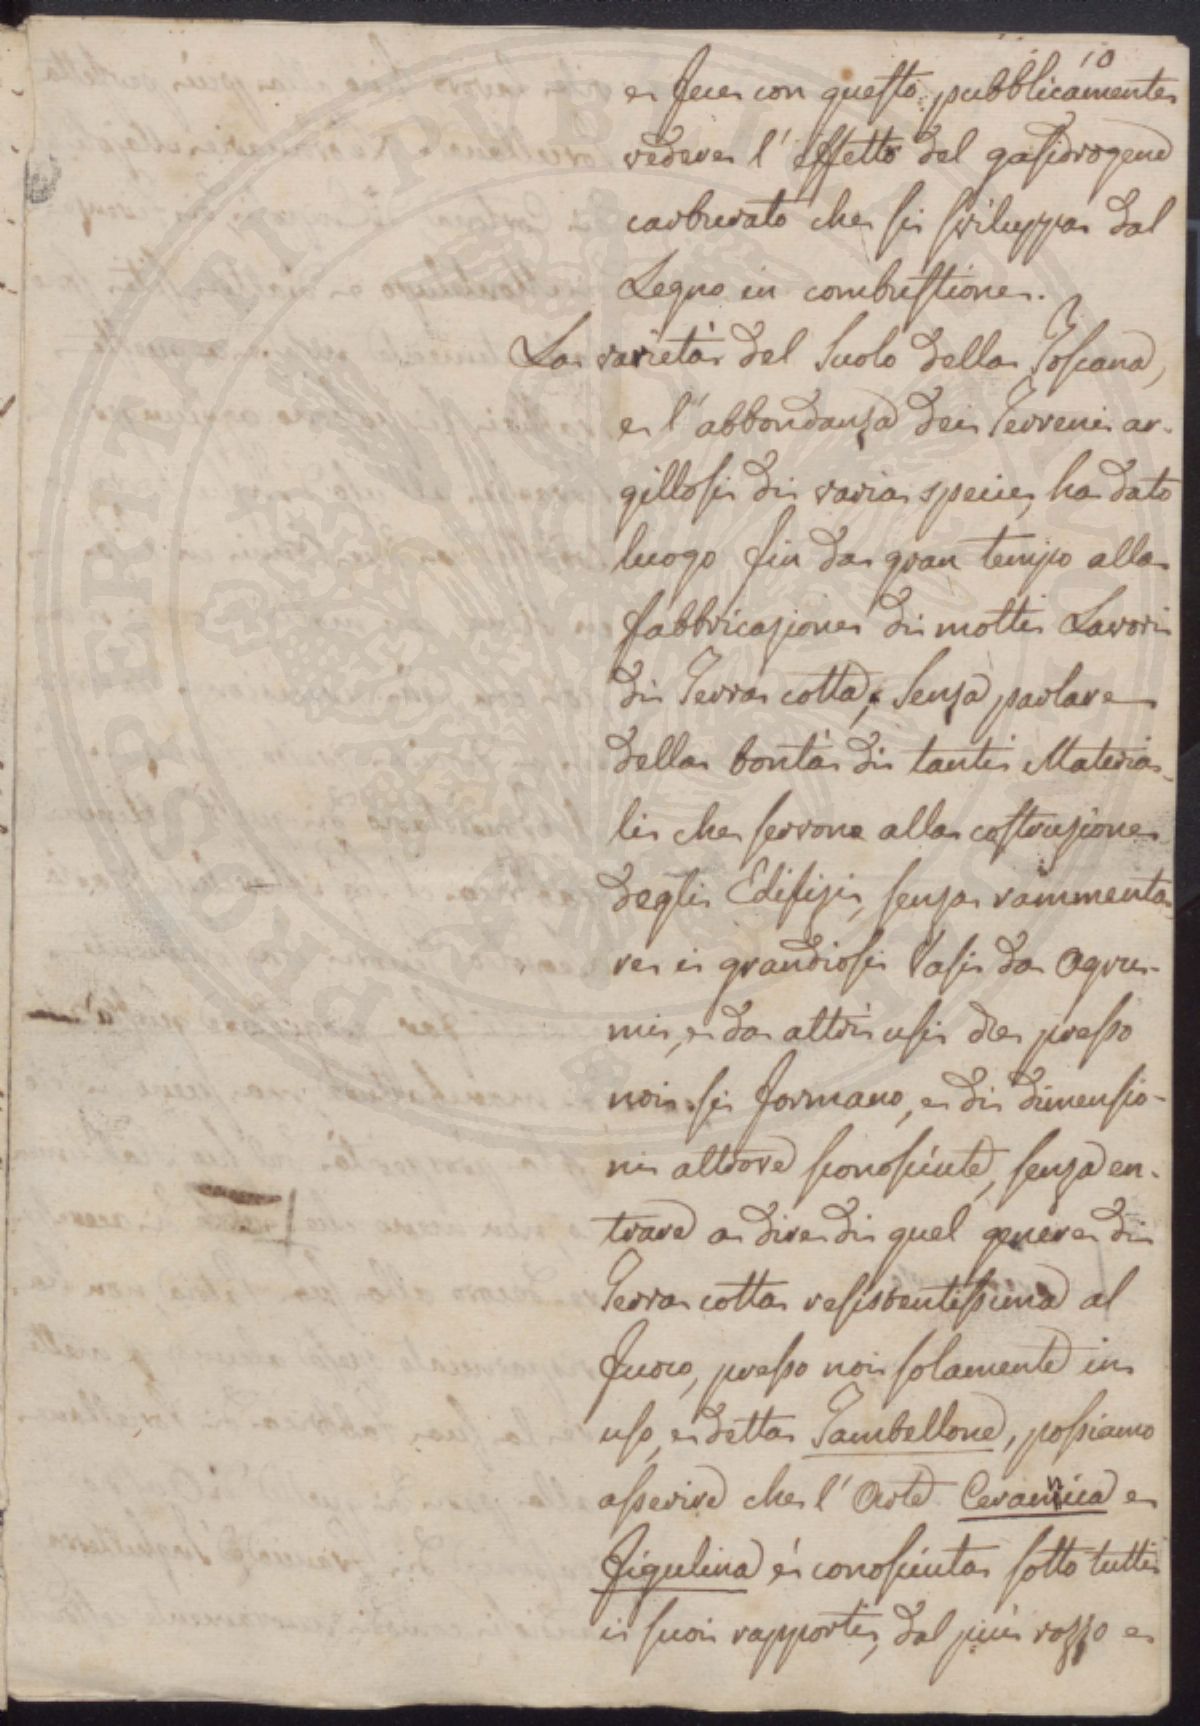 10
e fece con questo pubblicamente
vedere l'effetto del gasidrogene
carburato che si sviluppa dal
Legno in combustione.
La varietà del Suolo della Toscana,
e l'abbondanza dei Terreni ar-
gillosi di varia specie, ha dato
luogo fin da gran tempo alla
fabbricazione di molti Lavori
di Terra cotta; Senza parlare
della bontà di tanti Materia-
li che servono alla costruzione
degli Edifizi, senza rammenta-
re i grandiosi Vasi da Agru-
mi, e da altri usi che presso
noi si formano, e di dimensio-
ni altrove sconosciute, senza en-
trare a dire di quel genere di
Terra cotta resistentissima al
fuoco, presso noi solamente in
uso, e detta Tambellone, possiamo
asserire che l'Arte Ceramica e
Figulina è conosciuta sotto tutti
i suoi rapporti, dal più rozzo e
PROSPERITATI PUBLICAE